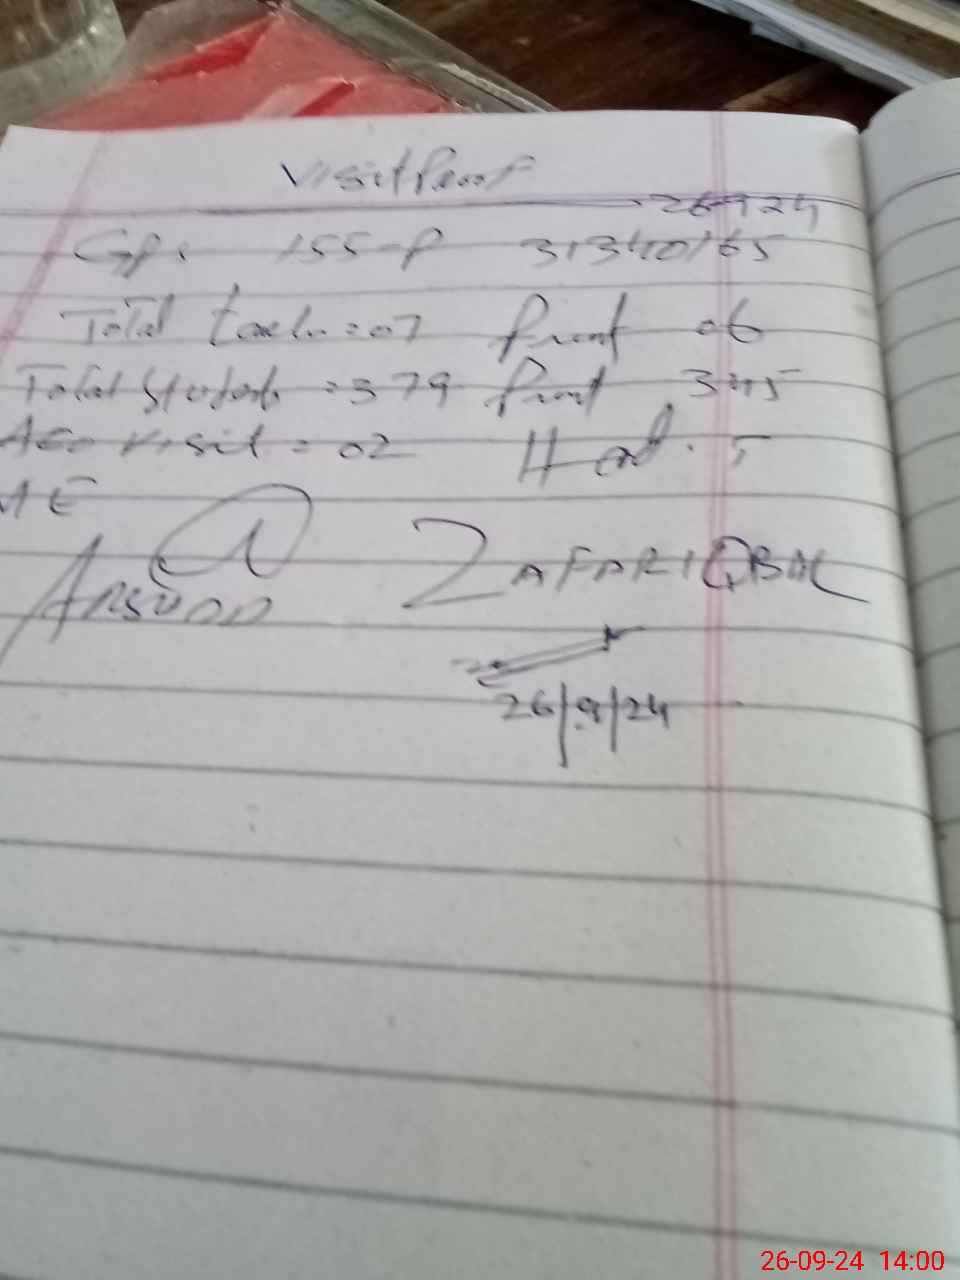 Visit Proof
26-9-24
GPS 155-P 31340165
Total teach = 07 Present 06
Total Students = 379 Present 345
AEO visit = 02 Head.
AE
ZAFAR IQBAL
26/9/24
26-09-24 14:00